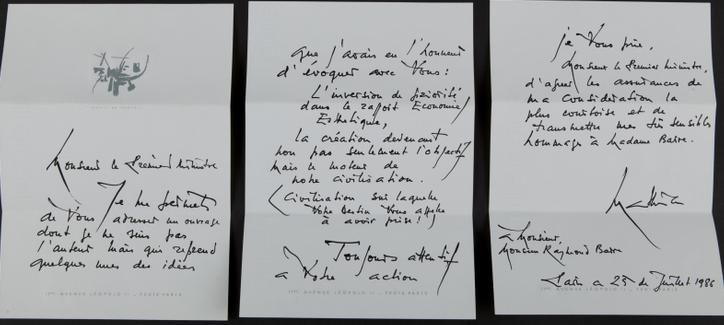 Monsieur le Premier Ministre
Je me permets
de Vous adresser un ouvrage
dont je ne suis pas
l'auteur mais qui reprend
quelques unes des idées
que j'avais eu l'honneur
d'évoquer avec Vous :
L'inversion de priorité
dans le rapport Economie/
Esthétique,
la création devenant
non pas seulement l'objectif
mais le moteur de
notre civilisation.
(Civilisation sur laquelle
Votre Destin Vous appelle
à avoir prise !)
Toujours attentif
à Votre action
AVENUE LÉOPOLD II - 75016 PARIS
je Vous prie,
Monsieur le Premier Ministre,
d'agréer les assurances de
ma considération la
plus courtoise et de
transmettre mes très sensibles
hommages à Madame Barre.
à Monsieur,
Monsieur Raymond Barre
Paris ce 25 de Juillet 1986
AVENUE LÉOPOLD II - 75016 PARIS